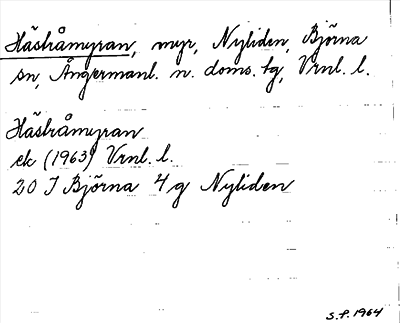 Hästråmyran, myr, Nyliden, Björna
sn, Ångermanl. n. doms. tg, Vrnl. l.
Hästråmyran
ek (1963) Vrnl. l.
20 J Björna 4 g Nyliden
S.P. 1964